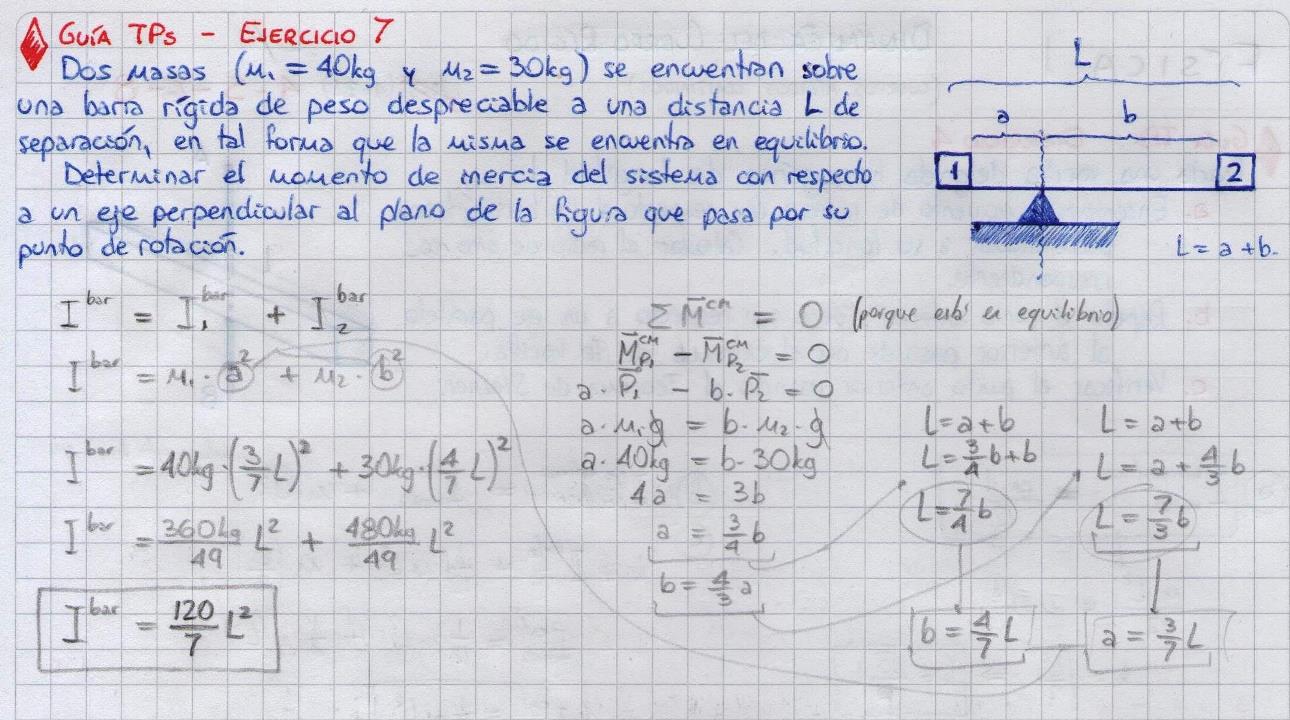 GUÍA TPs - EJERCICIO 7
Dos masas (m₁ = 40kg y m₂ = 30kg) se encuentran sobre
una barra rígida de peso despreciable a una distancia L de
separación, en tal forma que la misma se encuentra en equilibrio.
Determinar el momento de inercia del sistema con respecto
a un eje perpendicular al plano de la figura que pasa por su
punto de rotación.
L
a b
1 2
L = a + b.
I^bar = I₁^bar + I₂^bar
I^bar = m₁ · a² + m₂ · b²
I^bar = 40kg · (3/7 L)² + 30kg · (4/7 L)²
I^bar = 360kg/49 L² + 480kg/49 L²
I^bar = 120/7 L²
∑ M̄^cm = 0 (porque está en equilibrio)
M̄_P₁^cm − M̄_P₂^cm = 0
a · P̄₁ − b · P̄₂ = 0
a · m₁ · g = b · m₂ · g
a · 40kg = b · 30kg
4a = 3b
a = 3/4 b
b = 4/3 a
L = a + b
L = 3/4 b + b
L = 7/4 b
b = 4/7 L
L = a + b
L = a + 4/3 b
L = 7/3 b
a = 3/7 L